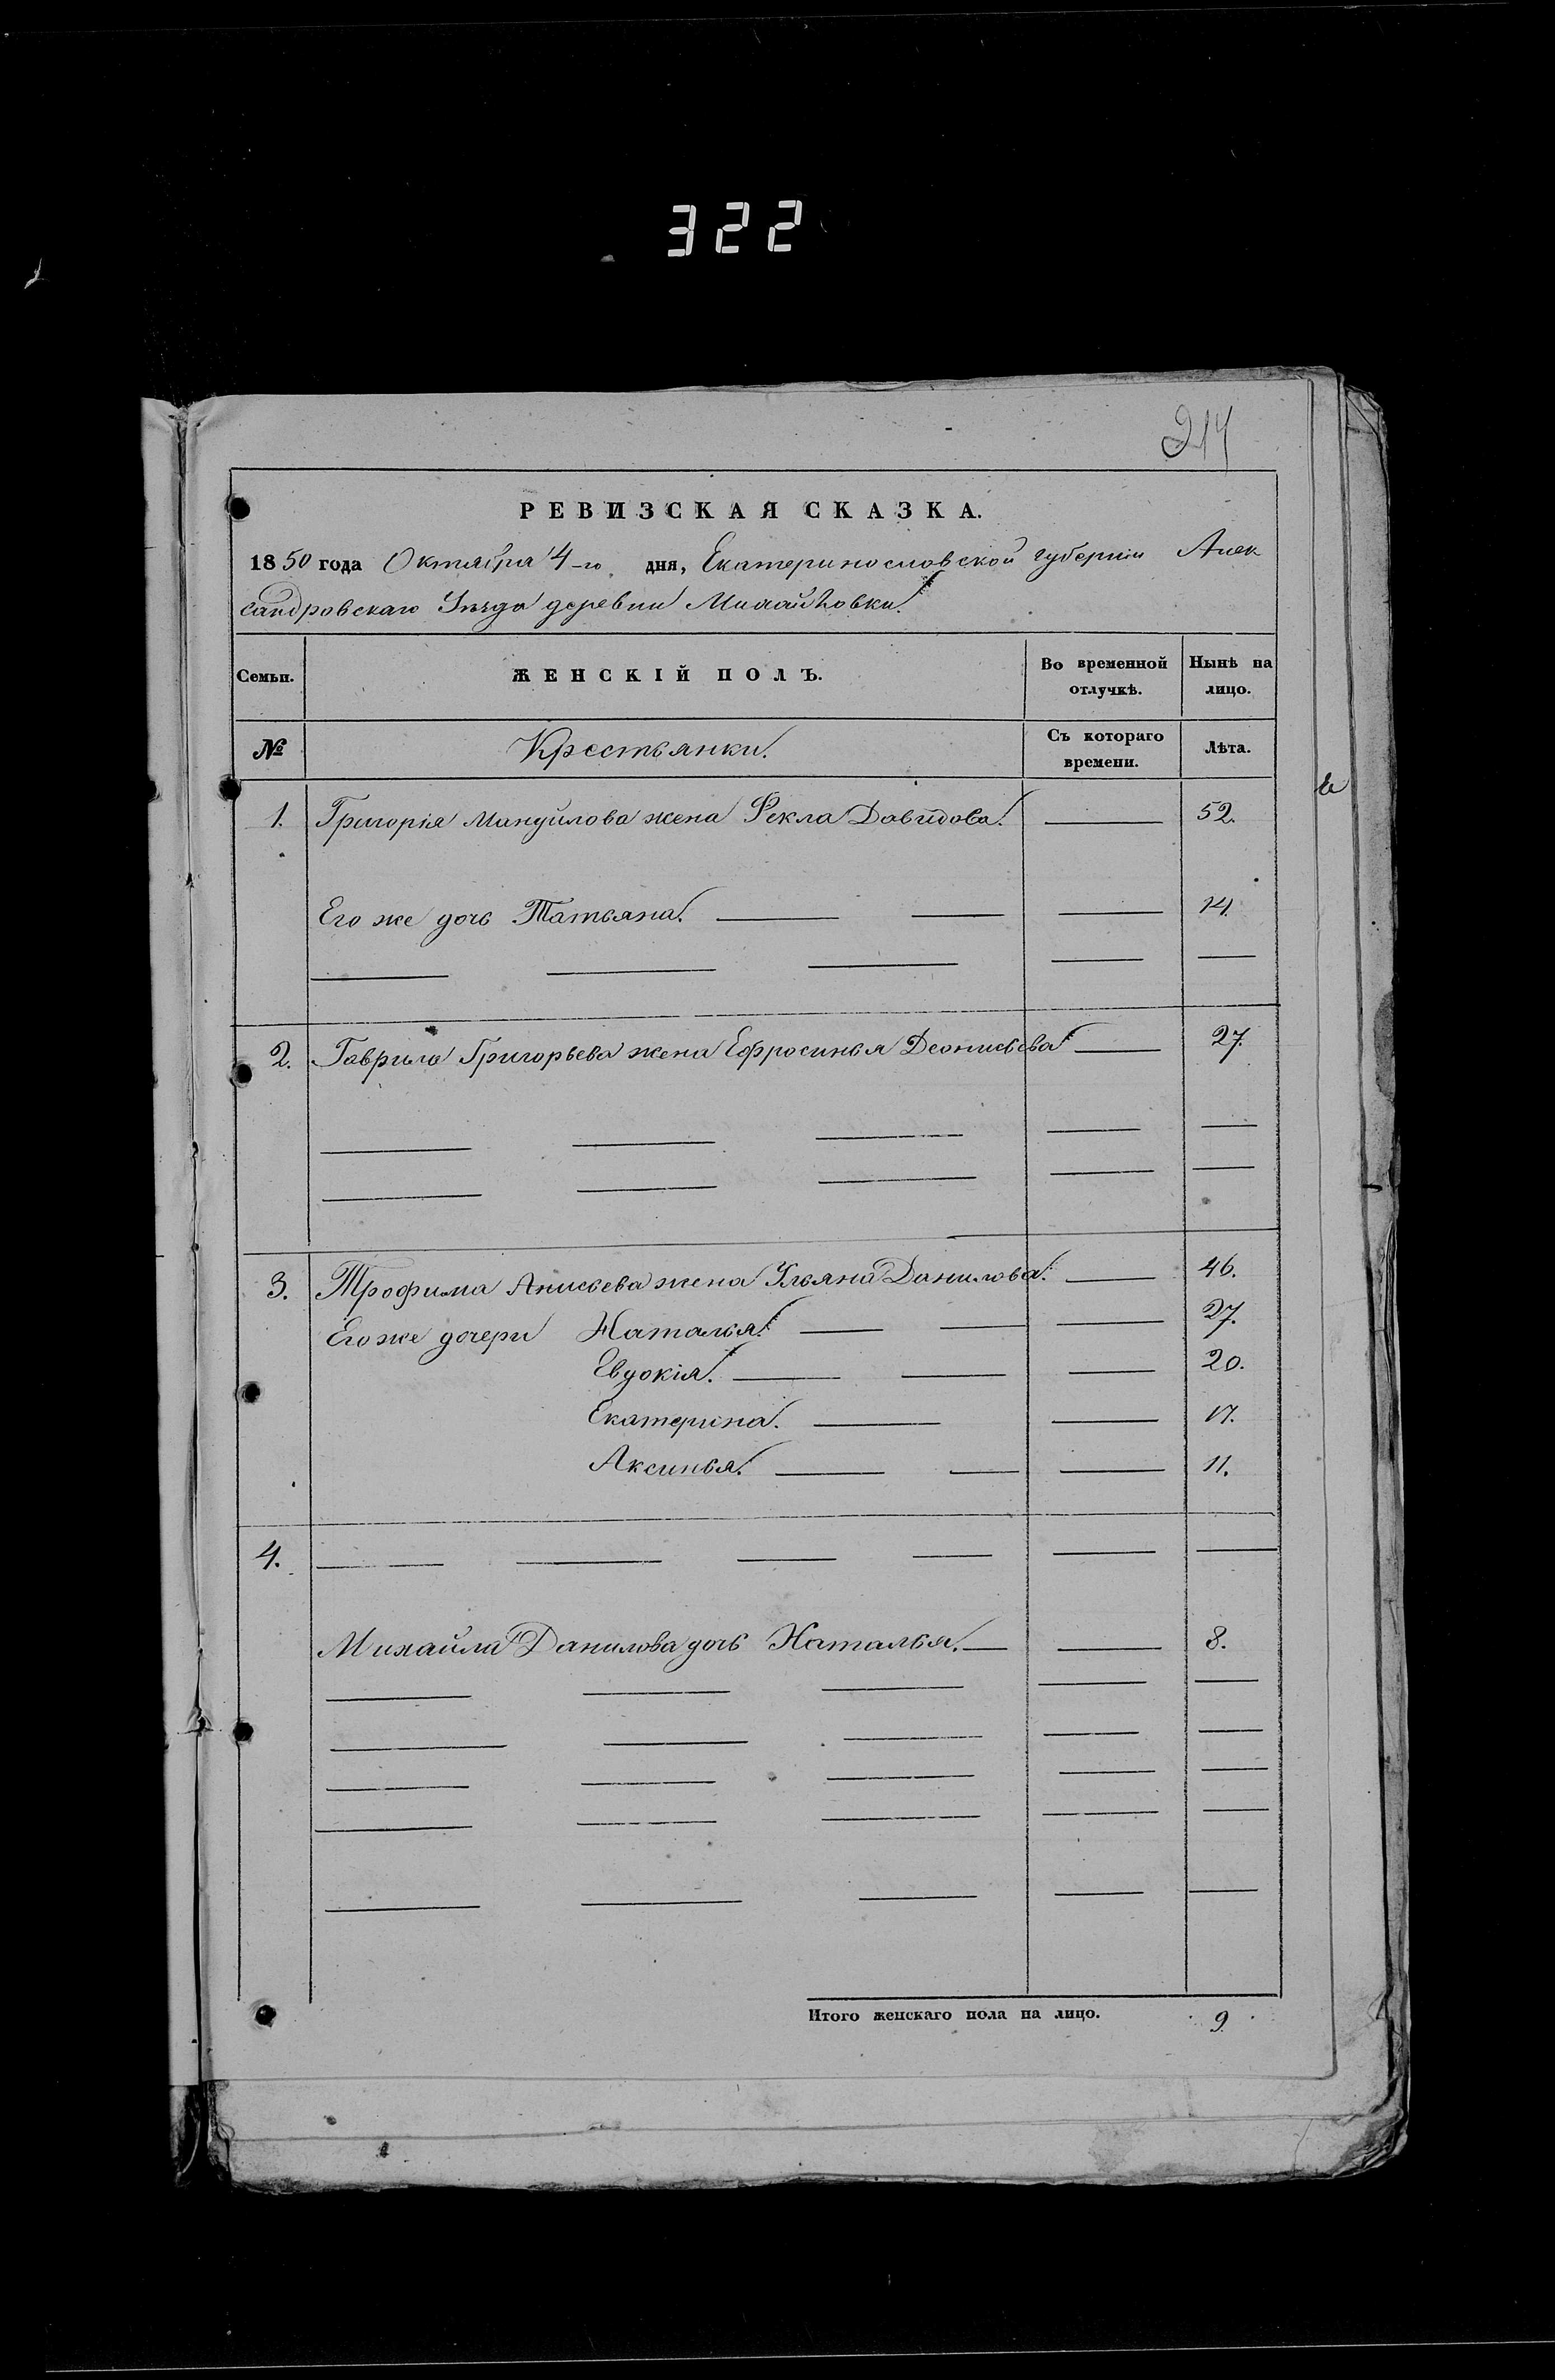 322
214
РЕВИЗСКАЯ СКАЗКА.
1850 года Октября 4-го дня, Екатеринославской губернии Алек
сандровскаго Уѣзда деревни Михайловки.
Семьи. ЖЕНСКІЙ ПОЛЪ. Во временной отлучкѣ. Нынѣ на лицо.
№ Крестьянки. Съ котораго времени. Лѣта.
1. Григорія Мануйлова жена Фекла Давидова. — 52.
Его же дочь Татьяна. — 14.
2. Гаврила Григорьева жена Ефросинья Деонисьева — 27.
3. Трофима Анисьева жена Ульяна Данилова. — 46.
Его же дочери Наталья. — 27.
Евдокія. — 20.
Екатерина. — 17.
Аксинья. — 11.
4. —
Михайлы Данилова дочь Наталья. — 8.
Итого женскаго пола на лицо. 9